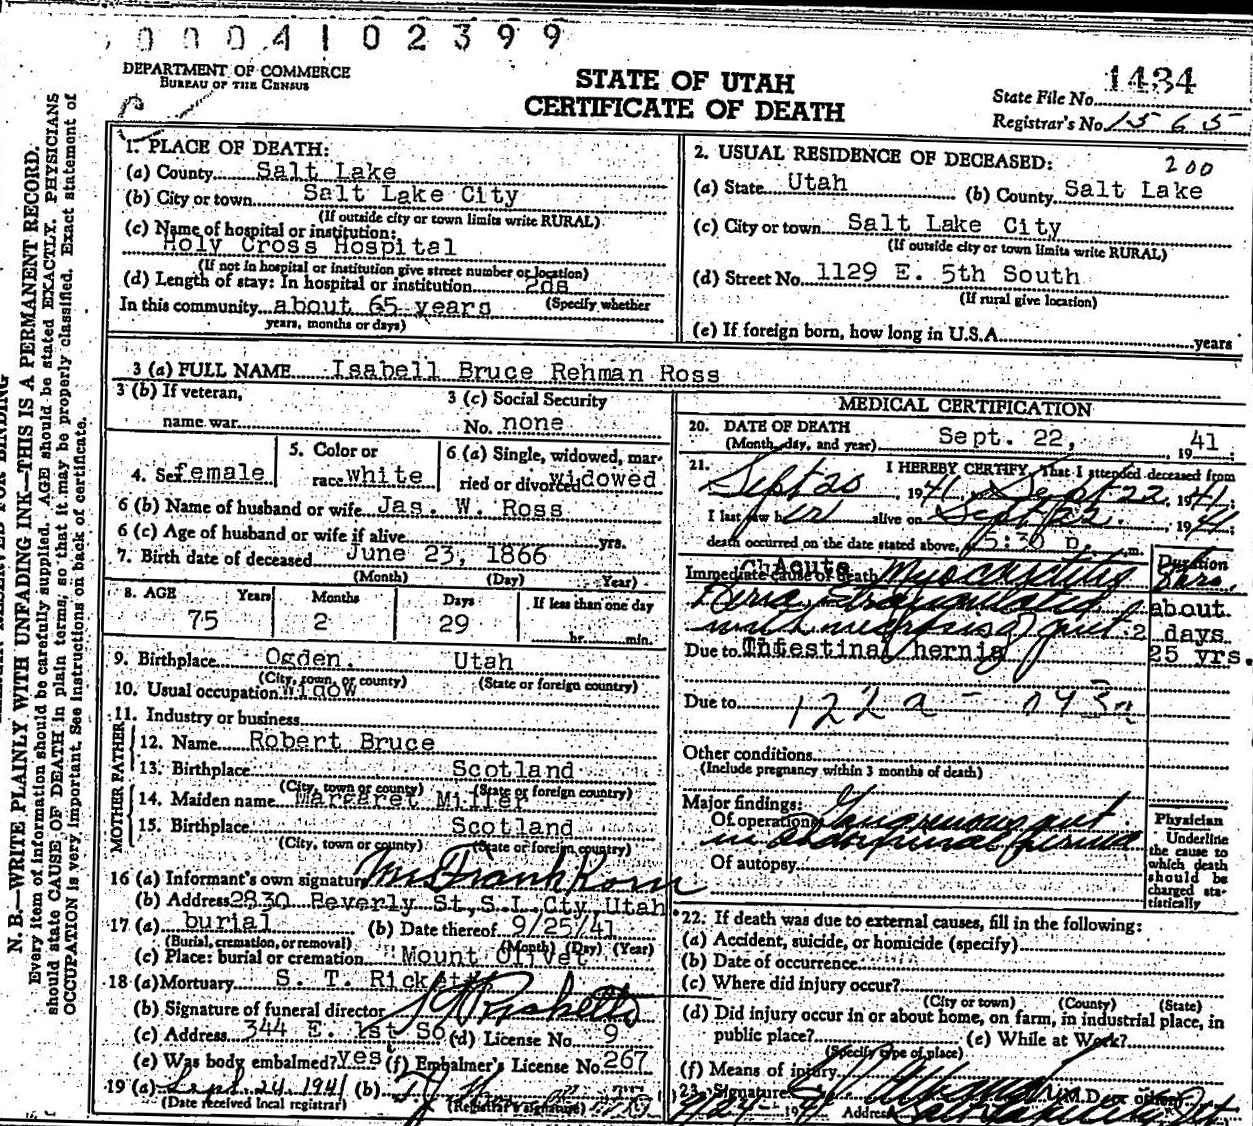 0004102399
DEPARTMENT OF COMMERCE
BUREAU OF THE CENSUS
STATE OF UTAH
CERTIFICATE OF DEATH
State File No. 1484
Registrar's No. 1565
N. B.—WRITE PLAINLY WITH UNFADING INK—THIS IS A PERMANENT RECORD.
Every item of information should be carefully supplied. AGE should be stated EXACTLY. PHYSICIANS
should state CAUSE OF DEATH in plain terms, so that it may be properly classified. Exact statement of
OCCUPATION is very important. See instructions on back of certificate.
1. PLACE OF DEATH:
(a) County Salt Lake
(b) City or town Salt Lake City
(If outside city or town limits write RURAL)
(c) Name of hospital or institution:
Holy Cross Hospital
(If not in hospital or institution give street number or location)
(d) Length of stay: In hospital or institution 2ds
(Specify whether
In this community about 65 years
years, months or days)
2. USUAL RESIDENCE OF DECEASED: 200
(a) State Utah (b) County Salt Lake
(c) City or town Salt Lake City
(If outside city or town limits write RURAL)
(d) Street No. 1129 E. 5th South
(If rural give location)
(e) If foreign born, how long in U.S.A. years
3 (a) FULL NAME Isabell Bruce Rehman Ross
3 (b) If veteran,
name war
3 (c) Social Security
No. none
4. Sex female
5. Color or
race white
6 (a) Single, widowed, mar-
ried or divorced widowed
6 (b) Name of husband or wife Jas. W. Ross
6 (c) Age of husband or wife if alive yrs.
7. Birth date of deceased June 23, 1866
(Month) (Day) (Year)
8. AGE Years Months Days If less than one day
75 2 29 hr. min.
9. Birthplace Ogden. Utah
(City, town, or county) (State or foreign country)
10. Usual occupation widow
11. Industry or business
FATHER
12. Name Robert Bruce
13. Birthplace Scotland
(City, town or county) (State or foreign country)
MOTHER
14. Maiden name Margaret Miller
15. Birthplace Scotland
(City, town or county) (State or foreign country)
16 (a) Informant's own signature Mrs Frank Korn
(b) Address 2830 Beverly St, S.L. Cty, Utah
17 (a) burial (b) Date thereof 9/25/41
(Burial, cremation, or removal) (Month) (Day) (Year)
(c) Place: burial or cremation Mount Olivet
18 (a) Mortuary S. T. Ricketts
(b) Signature of funeral director Ricketts
(c) Address 344 E. 1st So (d) License No. 9
(e) Was body embalmed? yes (f) Embalmer's License No. 267
19 (a) Sept. 24 1941 (b)
(Date received local registrar) (Registrar's signature)
MEDICAL CERTIFICATION
20. DATE OF DEATH
(Month, day, and year) Sept. 22, 1941
21. I HEREBY CERTIFY, That I attended deceased from
Sept 20, 1941, Sept 22, 1941;
I last saw her alive on Sept 22, 1941;
death occurred on the date stated above, 5:30 p. m.
Duration
Immediate cause of death Acute Myocarditis
about
with necrosis of gut 2 days
Due to Intestinal hernia 25 yrs.
Due to 122a
Other conditions
(Include pregnancy within 3 months of death)
Major findings:
Of operations Gangrenous gut
in abdominal hernia
Of autopsy
Physician
Underline
the cause to
which death
should be
charged sta-
tistically
22. If death was due to external causes, fill in the following:
(a) Accident, suicide, or homicide (specify)
(b) Date of occurrence
(c) Where did injury occur?
(City or town) (County) (State)
(d) Did injury occur in or about home, on farm, in industrial place, in
public place? (e) While at Work?
(Specify type of place)
(f) Means of injury
23. Signature (M.D. or other)
Address Salt Lake City Ut